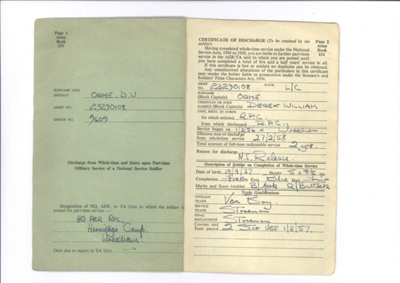 Page 1
Army
Book
111
SURNAME AND
INITIALS ORME, D.W
ARMY NO. 23290108
GROUP NO. 5609
Discharge from Whole-time and Entry upon Part-time
Military Service of a National Service Soldier
Designation of HQ, AER, or TA Unit to which the soldier is
posted for part-time service
HQ AER RPC
Hermitage Camp,
Wrexham
Date due to report to TA Unit
Page 2
Army
Book
111
CERTIFICATE OF DISCHARGE (To be retained by the
soldier)
Having completed whole-time service under the National
Service Acts, 1948 to 1950, you are liable to further part-time
service in the AER/TA unit to which you are posted until
you have completed a total of five and a half years' service in all.
If this certificate is lost or mislaid no duplicate can be obtained.
Any unauthorized alterations of the particulars in this certificate
may render the holder liable to prosecution under the Seamen's and
Soldiers' False Characters Act, 1906.
ARMY NO. 23290108 RANK L/C
SURNAME
(Block Capitals) ORME
CHRISTIAN OR FORE
NAMES
(Block Capitals) DEREK WILLIAM
UNIT, REGT. OR CORPS
for which enlisted RPC
from which discharged RPC
Service began on
Effective date of discharge from
whole-time service 27/2/58
Total amount of full-time reasonable service 2 yrs.
Reason for discharge
N.S. Release
Description of Soldier on Completion of Whole-time Service
Date of birth Height
Complexion Eyes Blue Hair
Marks and Scars (visible)
Trade Qualifications
CIVILIAN
TRADE Van Boy
SERVICE
TRADE Storeman
FINAL
EMPLOYMENT Storeman
COURSES AND
TESTS passed 1/2/57.